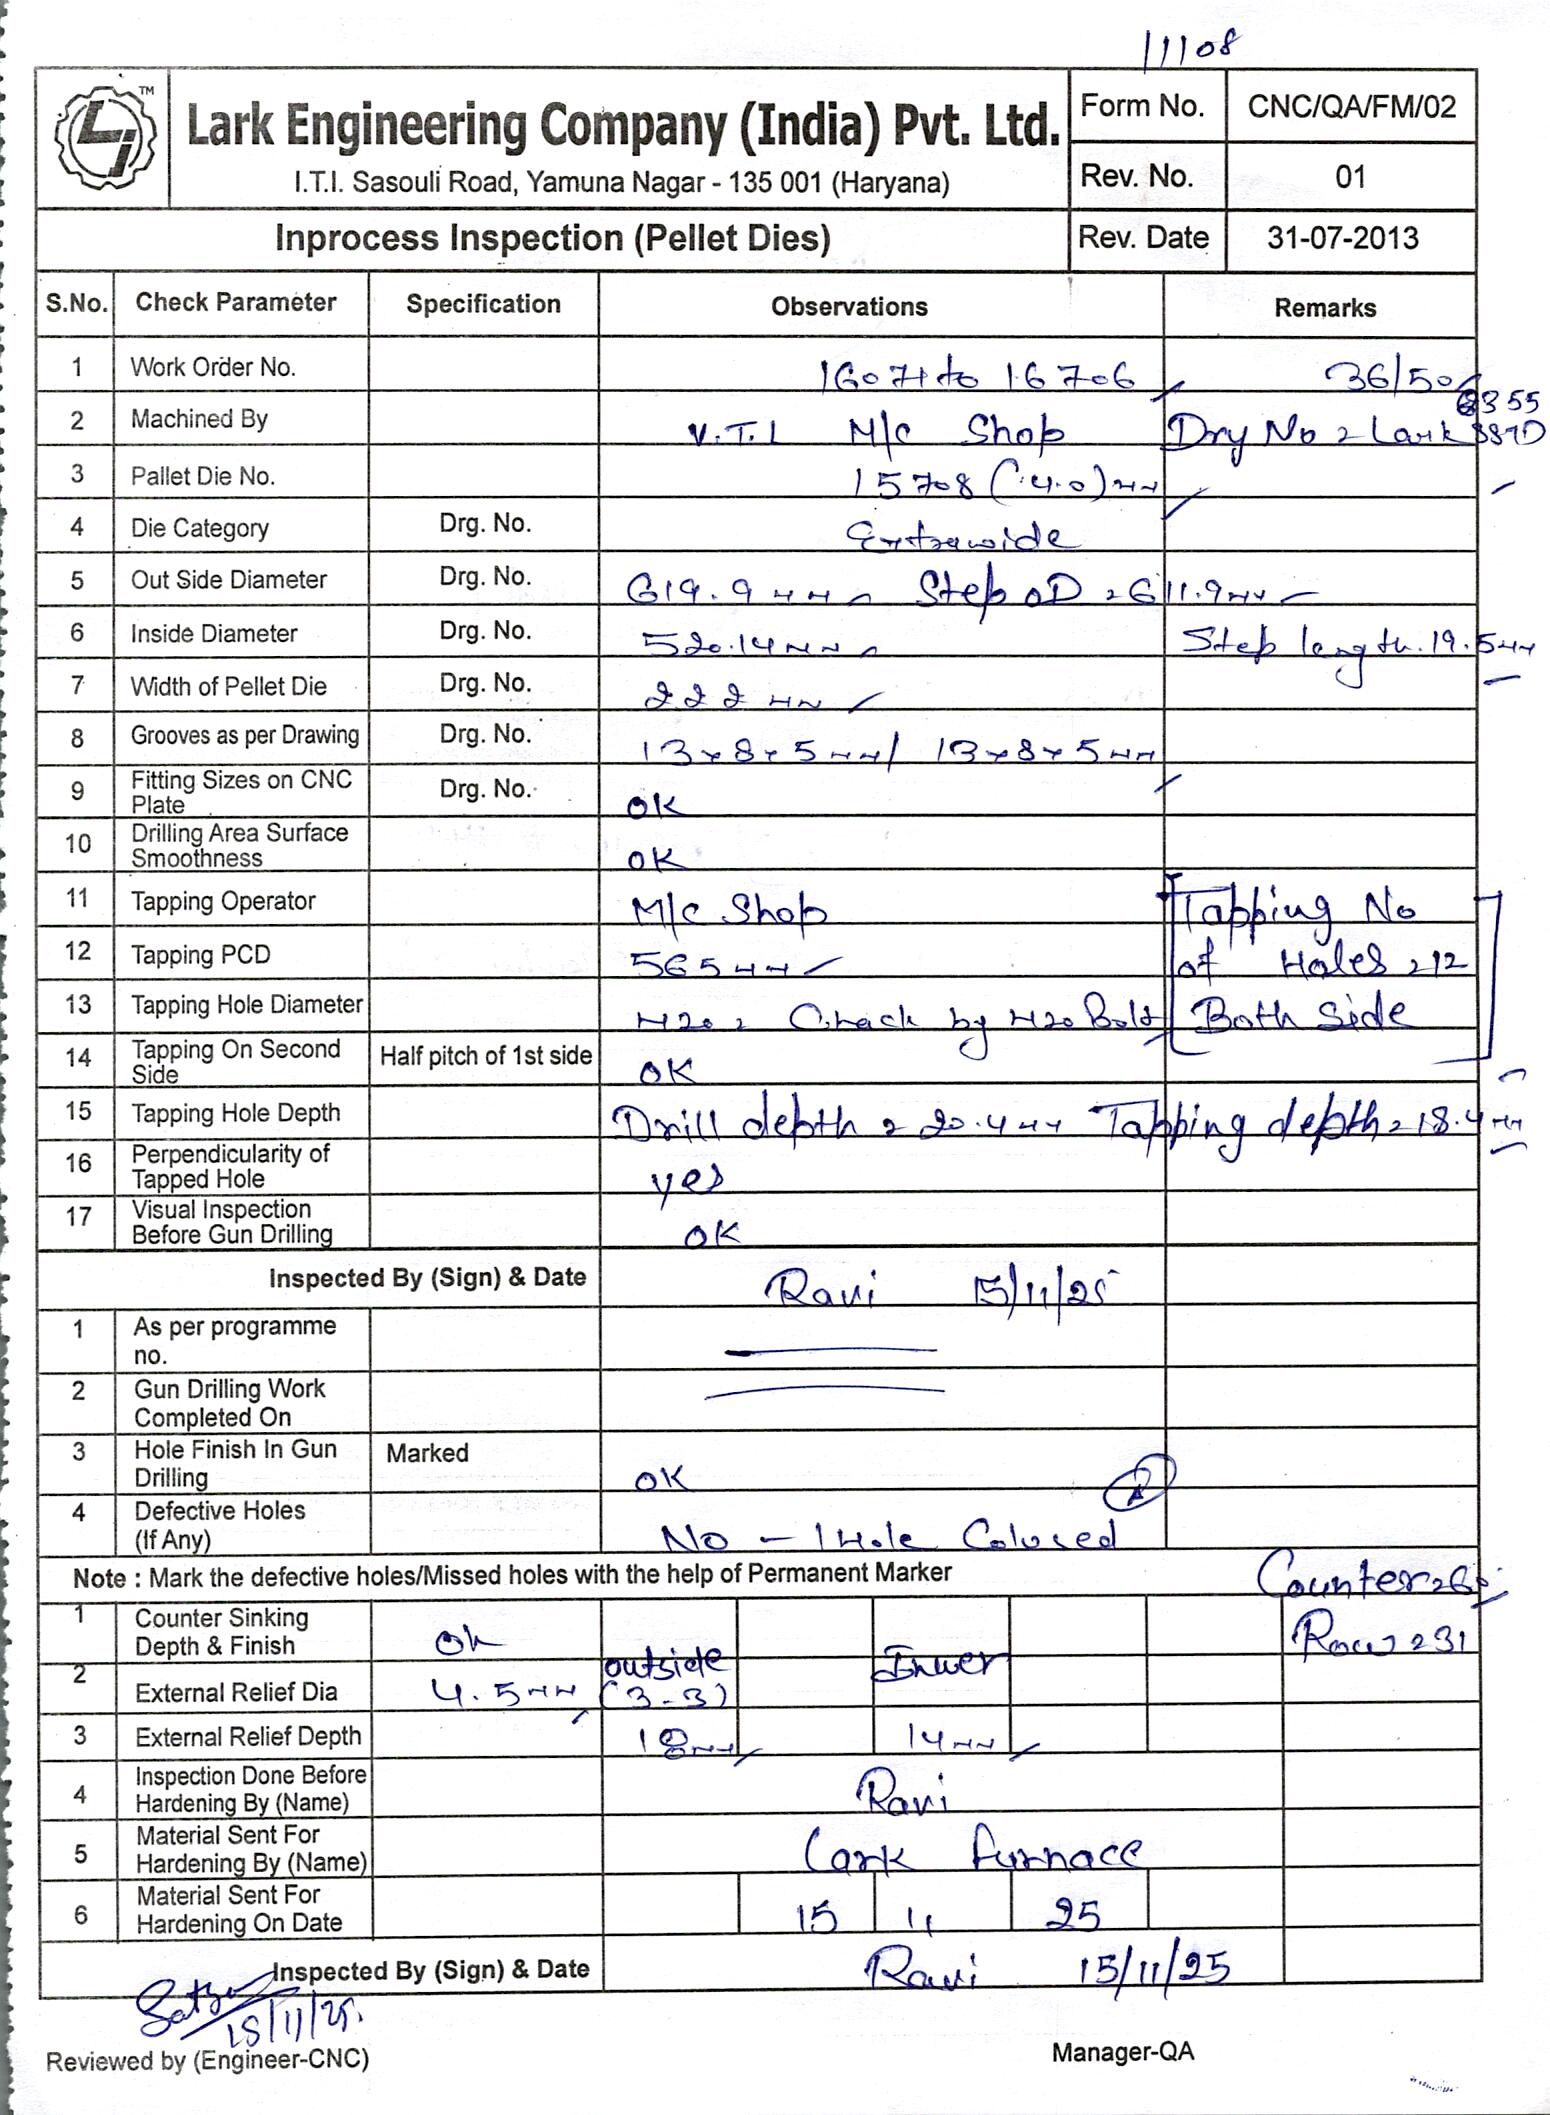 11108
TM
Lark Engineering Company (India) Pvt. Ltd.
I.T.I. Sasouli Road, Yamuna Nagar - 135 001 (Haryana)
Form No. CNC/QA/FM/02
Rev. No. 01
Inprocess Inspection (Pellet Dies) Rev. Date 31-07-2013
S.No. Check Parameter Specification Observations Remarks
1 Work Order No. to 16706 36/50
2 Machined By V.T.L M/C Shop Lark
3 Pallet Die No. 15708 (4.0)mm
4 Die Category Drg. No. Extrawide
5 Out Side Diameter Drg. No. 619.9mm Step OD = 611.9mm
6 Inside Diameter Drg. No. 520.14mm Step length. 19.5mm
7 Width of Pellet Die Drg. No. 222 mm
8 Grooves as per Drawing Drg. No. 13x8x5mm/ 13x8x5mm
9 Fitting Sizes on CNC Plate Drg. No. OK
10 Drilling Area Surface Smoothness OK
11 Tapping Operator M/C Shop Tapping No
12 Tapping PCD 565mm of Holes = 12
13 Tapping Hole Diameter M20 = Check by M20 Bolt Both Side
14 Tapping On Second Side Half pitch of 1st side OK
15 Tapping Hole Depth Drill depth = 20.4mm Tapping depth = 18.4mm
16 Perpendicularity of Tapped Hole yes
17 Visual Inspection Before Gun Drilling OK
Inspected By (Sign) & Date Ravi 15/11/25
1 As per programme no.
2 Gun Drilling Work Completed On
3 Hole Finish In Gun Drilling Marked OK
4 Defective Holes (If Any) No - 1 Hole Colused
Note : Mark the defective holes/Missed holes with the help of Permanent Marker Counter
1 Counter Sinking Depth & Finish Ok Row = 31
2 External Relief Dia 4.5mm outside (3-3) Inner
3 External Relief Depth 18mm 14mm
4 Inspection Done Before Hardening By (Name) Ravi
5 Material Sent For Hardening By (Name) Lark furnace
6 Material Sent For Hardening On Date 15 11 25
Inspected By (Sign) & Date Ravi 15/11/25
15/11/25.
Reviewed by (Engineer-CNC) Manager-QA